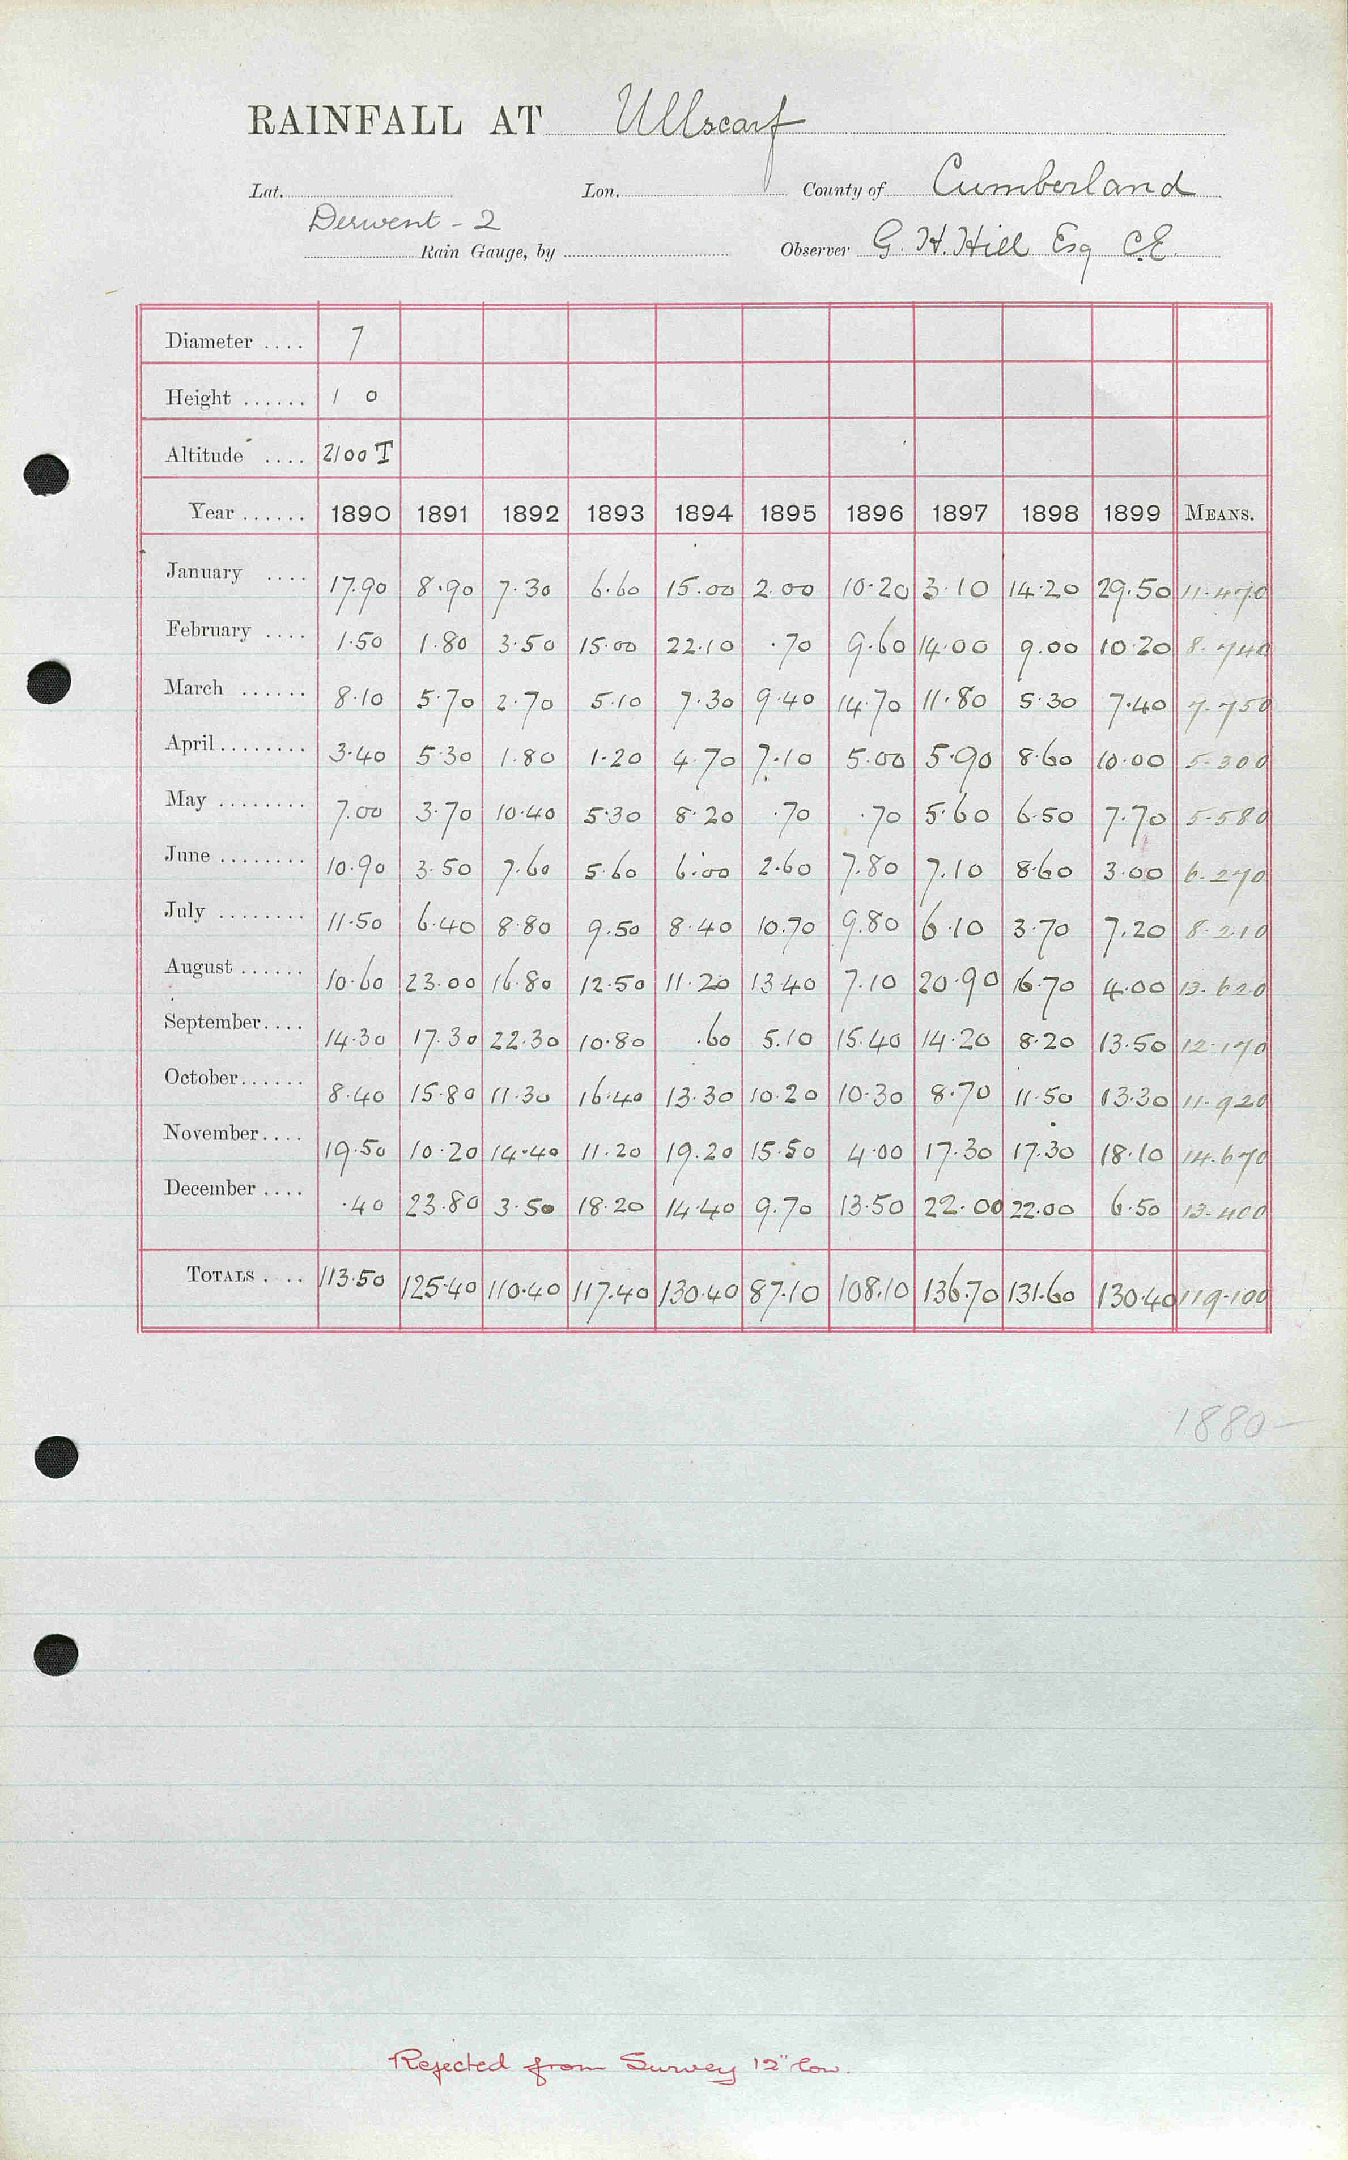 RAINFALL AT Ullscarf
Lat. Lon. County of Cumberland
Derwent - 2
Rain Gauge, by Observer G. H. Hill Esq C.E.
Diameter .... 7
Height ...... 1 0
Altitude .... 2100 T
Year ...... 1890 1891 1892 1893 1894 1895 1896 1897 1898 1899 MEANS.
January .... 17.90 8.90 7.30 6.60 15.00 2.00 10.20 3.10 14.20 29.50 11.470
February .... 1.50 1.80 3.50 15.00 22.10 .70 9.60 14.00 9.00 10.20 8.740
March ...... 8.10 5.70 2.70 5.10 7.30 9.40 14.70 11.80 5.30 7.40 7.750
April........ 3.40 5.30 1.80 1.20 4.70 7.10 5.00 5.90 8.60 10.00 5.300
May ........ 7.00 3.70 10.40 5.30 8.20 .70 .70 5.60 6.50 7.70 5.580
June ........ 10.90 3.50 7.60 5.60 6.00 2.60 7.80 7.10 8.60 3.00 6.270
July ........ 11.50 6.40 8.80 9.50 8.40 10.70 9.80 6.10 3.70 7.20 8.210
August ...... 10.60 23.00 16.80 12.50 11.20 13.40 7.10 20.90 16.70 4.00 13.620
September.... 14.30 17.30 22.30 10.80 .60 5.10 15.40 14.20 8.20 13.50 12.170
October...... 8.40 15.80 11.30 16.40 13.30 10.20 10.30 8.70 11.50 13.30 11.920
November.... 19.50 10.20 14.40 11.20 19.20 15.50 4.00 17.30 17.30 18.10 14.670
December .... .40 23.80 3.50 18.20 14.40 9.70 13.50 22.00 22.00 6.50 13.400
TOTALS .... 113.50 125.40 110.40 117.40 130.40 87.10 108.10 136.70 131.60 130.40 119.100
1880-
Rejected from Survey 12" low.